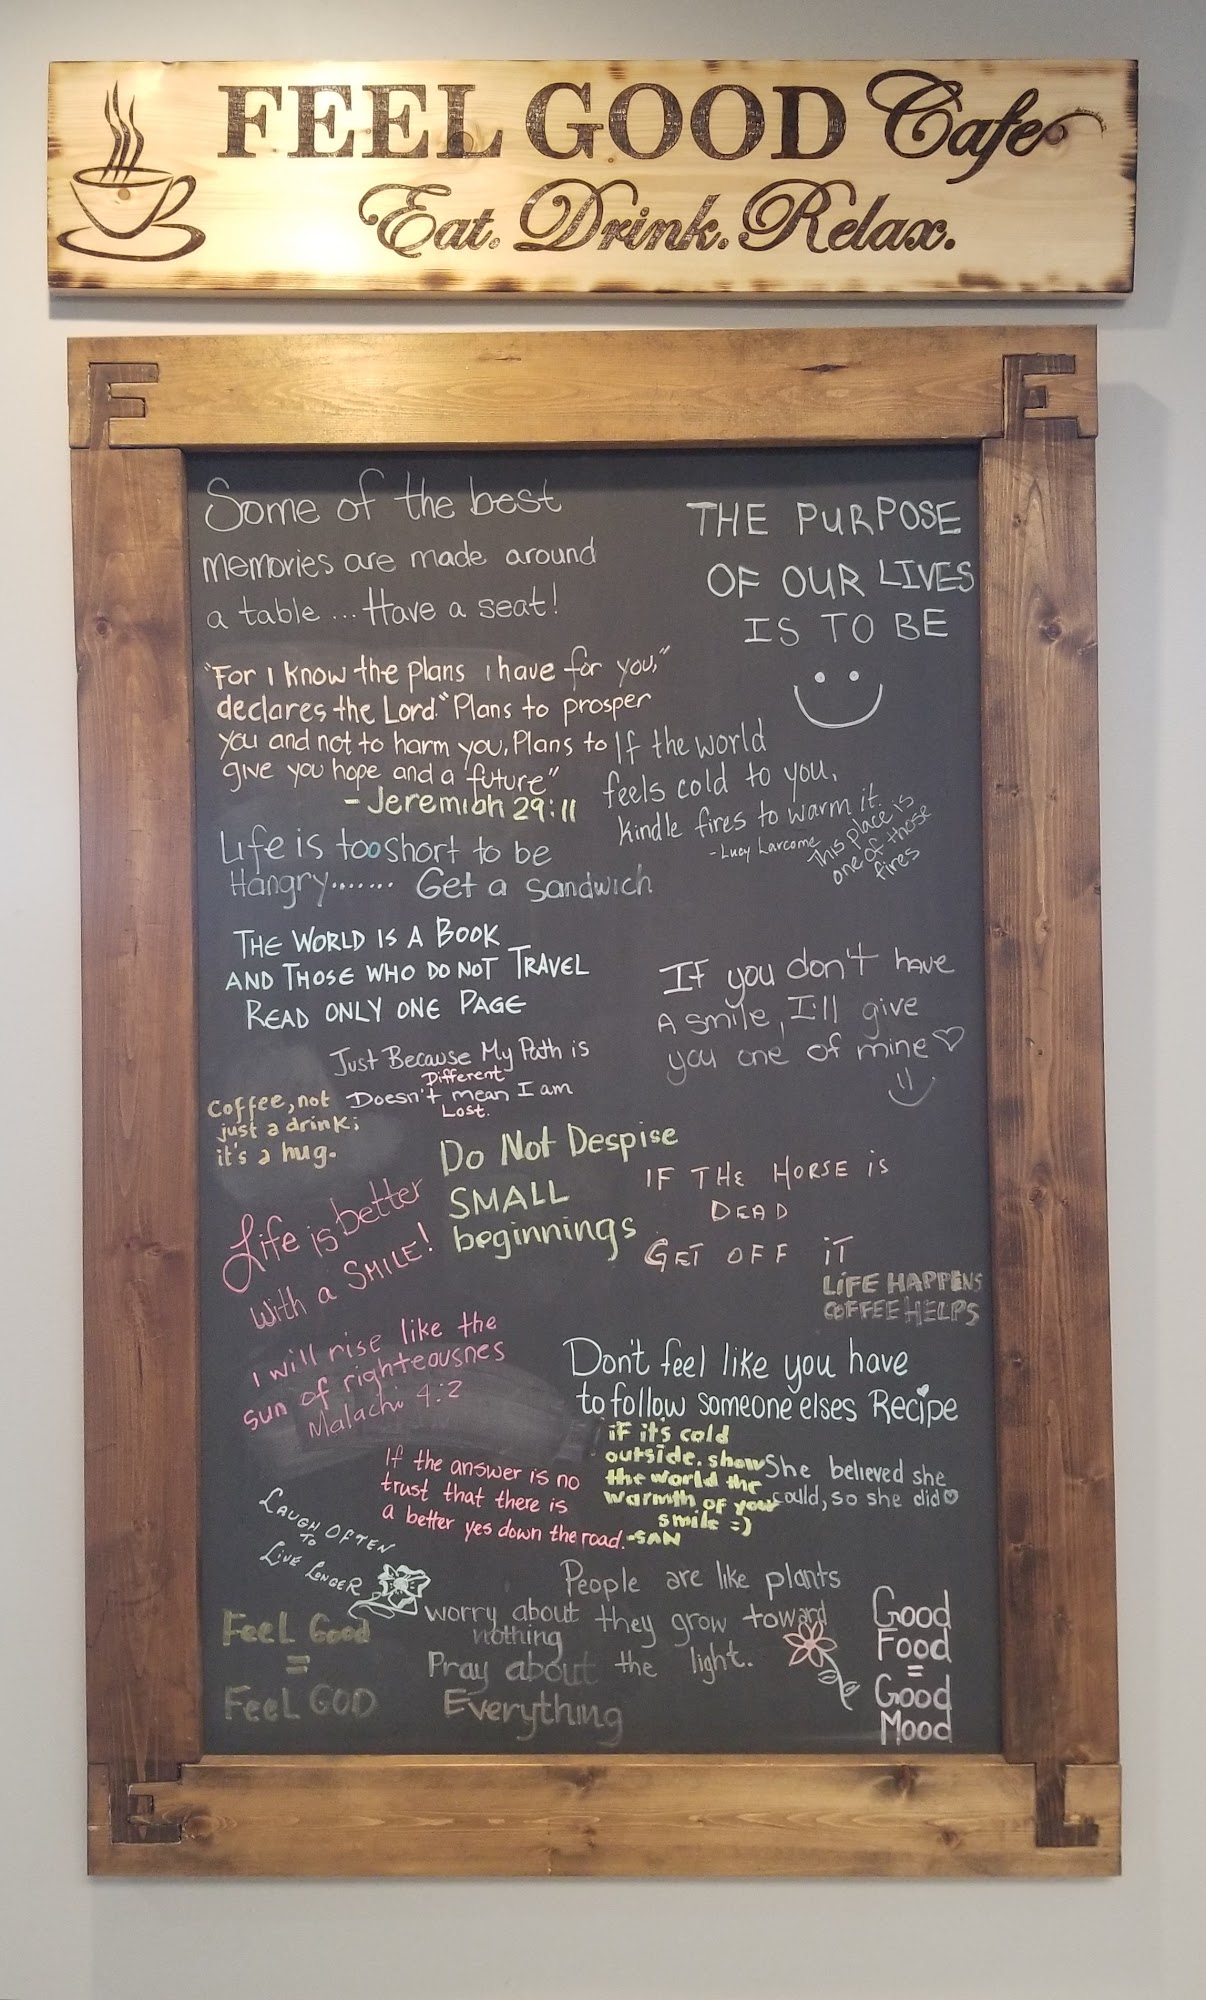 FEEL GOOD Cafe
Eat. Drink. Relax.
F
E
E
L
Some of the best
memories are made around
a table ... Have a seat!
THE PURPOSE
OF OUR LIVES
IS TO BE
"For I know the plans i have for you,"
declares the Lord. "Plans to prosper
you and not to harm you, Plans to
give you hope and a future"
- Jeremiah 29:11
If the world
feels cold to you,
kindle fires to warm it.
- Lucy Larcome
This place is
one of those
fires
Life is too short to be
Hangry....... Get a sandwich
THE WORLD IS A BOOK
AND THOSE WHO DO NOT TRAVEL
READ ONLY ONE PAGE
If you don't have
A smile, I'll give
you one of mine ♡
Just Because My Path is
Different
Doesn't mean I am
Lost.
Coffee, not
just a drink;
it's a hug.
Do Not Despise
SMALL
beginnings
IF THE HORSE iS
DEAD
GET OFF iT
Life is better
with a SMILE!
LiFE HAPPENS
COFFEE HELPS
I will rise like the
sun of righteousnes
Malachi 4:2
Don't feel like you have
to follow someone elses Recipe
iF it's cold
outside. show
the world the
warmth of your
smile :)
-SAN
She believed she
could, so she did ♡
If the answer is no
trust that there is
a better yes down the road.
LAUGH OFTEN
TO
LIVE LONGER
People are like plants
they grow toward
the light.
FeeL Good
=
FeeL GOD
worry about
nothing
Pray about
Everything
Good
Food
=
Good
Mood